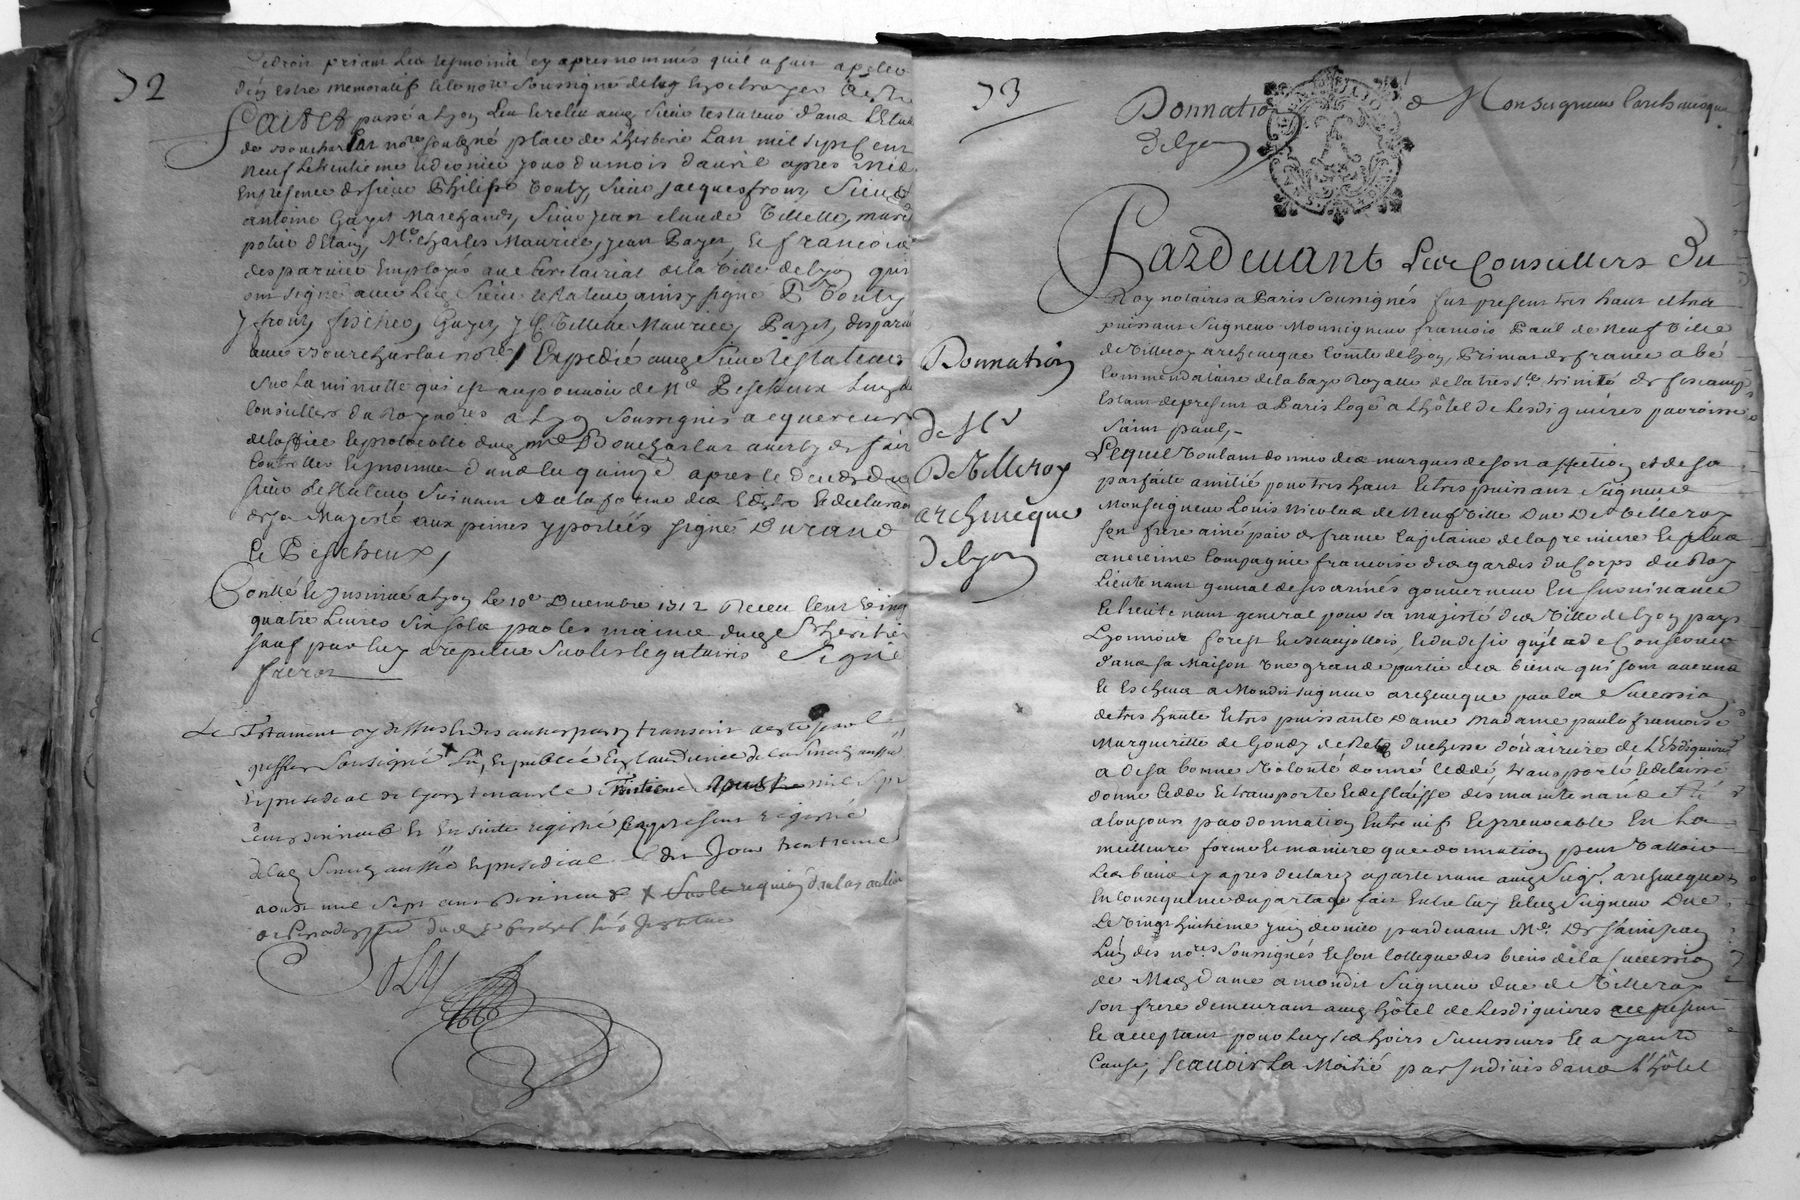 72
de droit priant les tesmoins cy apres nommés quil a fait apeller
d'en estre memoratifs et le nore soussigné de luy en octroyer acte
Fait et passé a Lyon au sieur testateur dans l'Etude
de Bourcharlat nore soussigné place de l'herberie Lan mil sept cent
neuf le trentieme jour du mois d'avril apres midi
En presence de sieur Philipe Tonty, sieur Jacques front, sieur
antoine Gayet Marchands, sieur Jean claude Tillette, mard
potier d'Etain, Me Charles Maurice, Jean Payet, et francois
desparnier Employés au Secretariat de la Ville de Lyon qui
ont signé avec Led Sieur testateur ainsy signé P Tonty
J front, Gayet, J C Tillette Maurice, Payet, desparnie
Bourcharlat nore / Expedié aud Sieur testateur
Sur la minutte qui est au pouvoir de Me Pescheux Lun des
Conseillers du Roy nores a Lyon soussignés acquereur
de loffice et protocolle dud me Bourcharlat
Controller
sieur testateur suivant et a la forme des Edits et declaraon
de sa Majesté aux peines y portées signé Durand
et Pescheux,
Conllé et Insinué a Lyon Le 10e Decembre 1712 Receu cent vingt
quatre Livres six sols par les mains dud Sr heritier
sauf par luy a repeter sur les legataires Signé
freron
Le Testament cy dessus et des autres parts transcrit a esté par le
greffier sousigné Lû, et publié En laudience de la Senechaussée
et presidial de Lyon tenante Le mil sept
cens et Ensuite registré Ez present registre
de lad Senechaussée et presidial Led Jour trentieme
aoust mil sept cens
Joly
73
Donnation de Monseigneur Larchevesque
de Lyon
Donnation
de Mr
De Villeroy
archeveque
de Lyon
Pardevant Les Conseillers du
Roy notaires a Paris Soussignés fut present tres haut et tres
puissant Seigneur Monseigneur francois Paul de Neufville
de Villeroy archeveque Comte de Lyon, Primat de france abé
Commendataire de labaye Royalle de la tres Ste trinité de fescamp
Estant de present a Paris Logé a L'hôtel de Lesdiguieres parroisse
Saint paul,
Lequel Voulant donner des marques de son affection et de sa
parfaite amitié pour tres haut et tres puissant Seigneur
Monseigneur Louis Nicolas de Neufville Duc De Villeroy
son frere ainé pair de france Capitaine de la premiere et plus
ancienne Compagnie francoise des gardes du Corps du Roy
Lieutenant general de ses armées gouverneur En survivance
et Lieutenant general pour sa majesté des Ville de Lyon pays
Lyonnois forest et Beaujollois, et du desir qu'il a de Conserver
dans sa Maison Une grande partie des biens qui sont avenus
et Eschus a Mondit seigneur archeveque par la Succession
de tres haute et tres puissante Dame Madame paule francoise
Margueritte de Gondy de Retz duchesse douairiere de LEsdiguieres
a de sa bonne Volonté donné cedé, transporté et delaissé
donne cedde et transporte et delaisse des maintenant et
a toujours par donnation Entre vifs et irrevocable En La
meilleure forme et maniere que donnation peut Valloir
Les biens cy apres declarez apartenant aud Seigr. archeveque
En consequence du partage fait Entre luy et led Seigneur Duc
Le Vingt huitieme juin dernier pardevant Me. De Saintjean
Lun des nores Soussignés et son collegue des biens de la succession
de Mad Dame a mondit Seigneur duc de Villeroy
son frere demeurant aud hôtel de Lesdiguieres a ce present
et acceptant pour luy ses hoirs successeurs et ayants
Cause, Scavoir La Moitié par Indivis dans l'hôtel